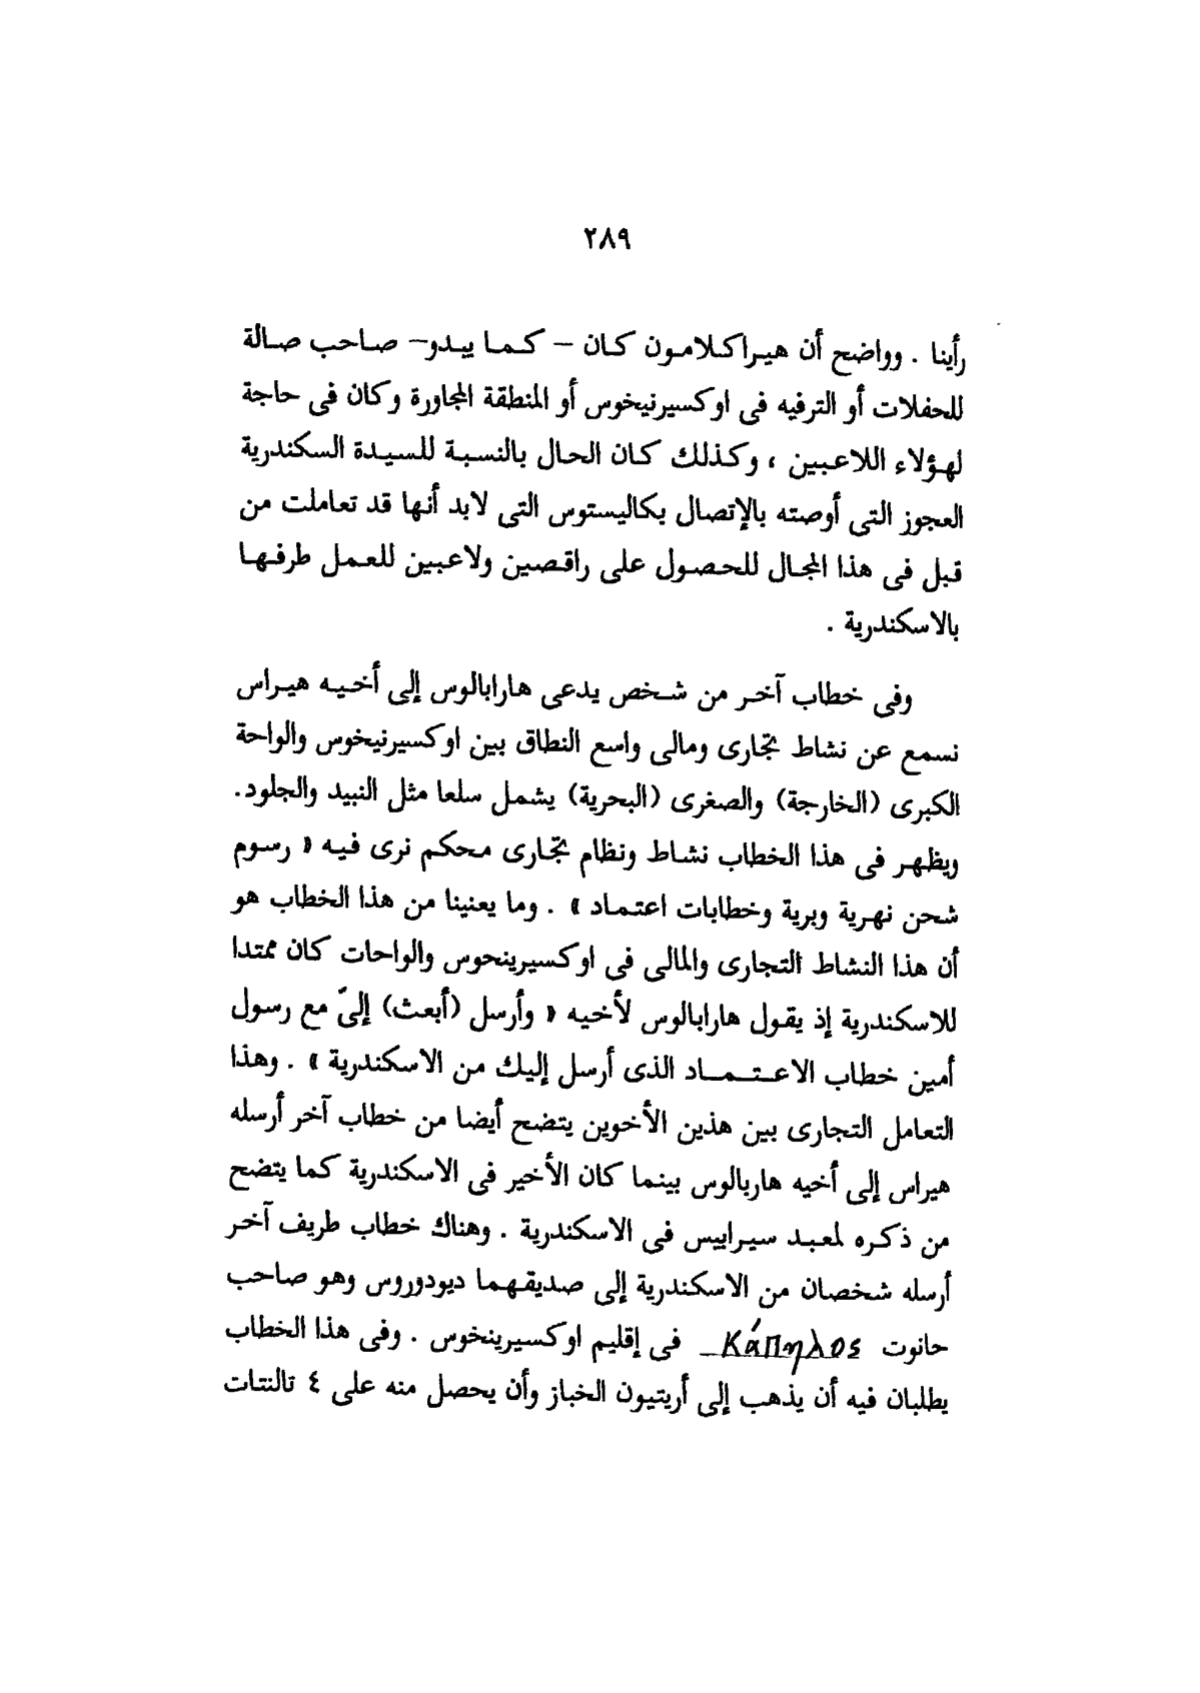 ٢٨٩
رأينا . وواضح أن هيراكلامون كان – كما يبدو– صاحب صالة
للحفلات أو الترفيه فى اوكسيرنيخوس أو المنطقة المجاورة وكان فى حاجة
لهؤلاء اللاعبين ، وكذلك كان الحال بالنسبة للسيدة السكندرية
العجوز التى أوصته بالإتصال بكاليستوس التى لابد أنها قد تعاملت من
قبل فى هذا المجال للحصول على راقصين ولاعبين للعمل طرفها
بالاسكندرية .
وفى خطاب آخر من شخص يدعى هارابالوس إلى أخيه هيراس
نسمع عن نشاط تجارى ومالى واسع النطاق بين اوكسيرنيخوس والواحة
الكبرى (الخارجة) والصغرى (البحرية) يشمل سلعا مثل النبيد والجلود.
ويظهر فى هذا الخطاب نشاط ونظام تجارى محكم نرى فيه « رسوم
شحن نهرية وبرية وخطابات اعتماد » . وما يعنينا من هذا الخطاب هو
أن هذا النشاط التجارى والمالى فى اوكسيرينحوس والواحات كان ممتدا
للاسكندرية إذ يقول هارابالوس لأخيه « وأرسل (أبعث) إلىّ مع رسول
أمين خطاب الاعتماد الذى أرسل إليك من الاسكندرية » . وهذا
التعامل التجارى بين هذين الأخوين يتضح أيضا من خطاب آخر أرسله
هيراس إلى أخيه هاربالوس بينما كان الأخير فى الاسكندرية كما يتضح
من ذكره لمعبد سيرابيس فى الاسكندرية . وهناك خطاب طريف آخر
أرسله شخصان من الاسكندرية إلى صديقهما ديودوروس وهو صاحب
حانوت κάπηλος فى إقليم اوكسيرينخوس . وفى هذا الخطاب
يطلبان فيه أن يذهب إلى أريتيون الخباز وأن يحصل منه على ٤ تالنتات